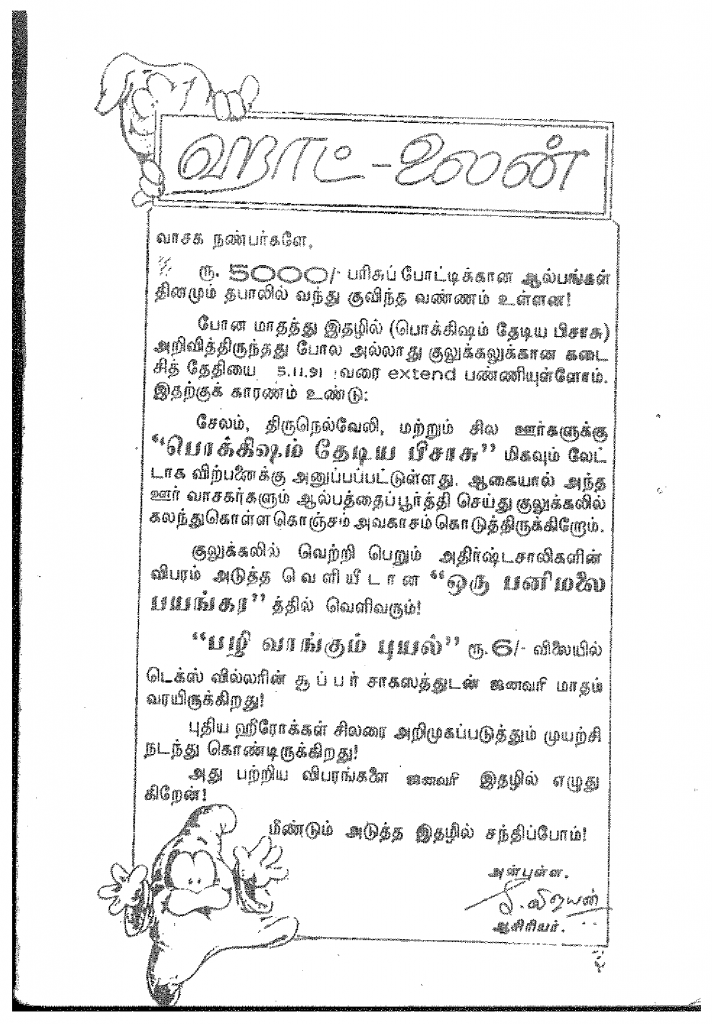 ஹாட்-லைன்
வாசக நண்பர்களே,
ரூ. 5000/- பரிசுப் போட்டிக்கான ஆல்பங்கள்
தினமும் தபாலில் வந்து குவிந்த வண்ணம் உள்ளன!
போன மாதத்து இதழில் (பொக்கிஷம் தேடிய பிசாசு)
அறிவித்திருந்தது போல அல்லாது குலுக்கலுக்கான கடை
சித் தேதியை 5.11.91 வரை extend பண்ணியுள்ளோம்.
இதற்குக் காரணம் உண்டு:
சேலம், திருநெல்வேலி, மற்றும் சில ஊர்களுக்கு
“பொக்கிஷம் தேடிய பிசாசு” மிகவும் லேட்
டாக விற்பனைக்கு அனுப்பப்பட்டுள்ளது. ஆகையால் அந்த
ஊர் வாசகர்களும் ஆல்பத்தைப்பூர்த்தி செய்து குலுக்கலில்
கலந்துகொள்ள கொஞ்சம் அவகாசம் கொடுத்திருக்கிறோம்.
குலுக்கலில் வெற்றி பெறும் அதிர்ஷ்டசாலிகளின்
விபரம் அடுத்த வெளியீடான “ஒரு பனிமலை
பயங்கர”த்தில் வெளிவரும்!
“பழி வாங்கும் புயல்” ரூ.6/- விலையில்
டெக்ஸ் வில்லரின் சூப்பர் சாகஸத்துடன் ஜனவரி மாதம்
வரயிருக்கிறது!
புதிய ஹீரோக்கள் சிலரை அறிமுகப்படுத்தும் முயற்சி
நடந்து கொண்டிருக்கிறது!
அது பற்றிய விபரங்களை ஜனவரி இதழில் எழுது
கிறேன்!
மீண்டும் அடுத்த இதழில் சந்திப்போம்!
அன்புள்ள.
S. விஜயன்
ஆசிரியர்.